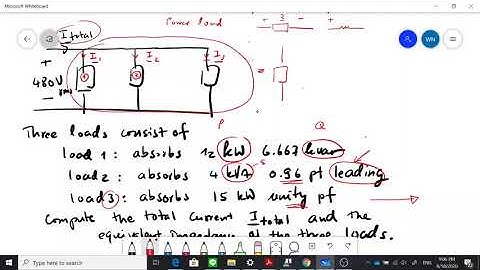 Microsoft Whiteboard
Power load
+ 3 - + -
I total
WN
I1 I2 I3
+ 480V rms -
1 2 =
P Q
Three loads consist of
load 1: absorbs 12 kW 6.667 kvar
load 2: absorbs 4 kVA 0.96 pf leading
load 3: absorbs 15 kW unity pf
compute the total current Itotal and the
equivalent impedance of the three loads.
Type here to search
ENG
9:06 PM